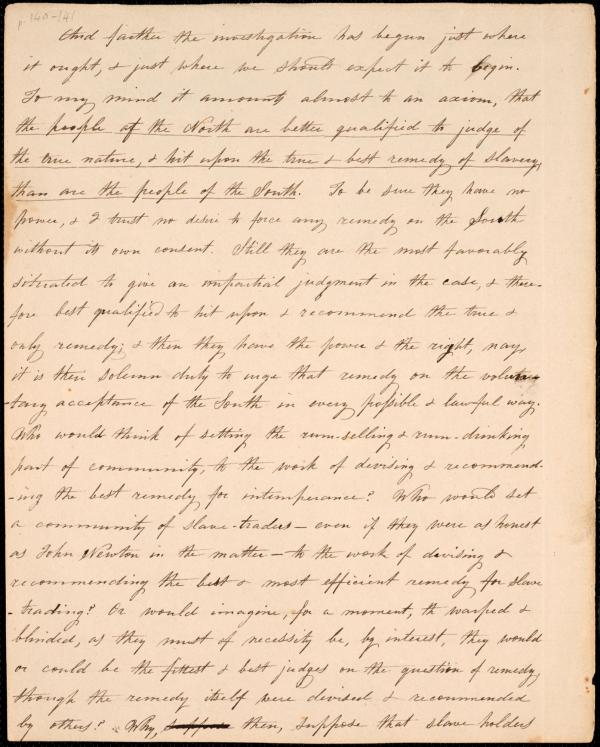 p. 140-141
And farther the investigation has begun just where
it ought, & just where we should expect it to begin.
To my mind it amounts almost to an axiom, that
the people of the North are better qualified to judge of
the true nature, & hit upon the true & best remedy of slavery,
than are the people of the South. To be sure they have no
power, & I trust no desire to force any remedy on the South
without its own consent. Still they are the most favorably
situated to give an impartial judgment in the case, & there-
fore best qualified to hit upon & recommend the true &
only remedy; & then they have the power & the right, nay,
it is their solemn duty to urge that remedy on the volun
-tary acceptance of the South in every possible & lawful way.
Who would think of setting the rum-selling & rum-drinking
part of community, to the work of devising & recommend-
-ing the best remedy for intemperance? Who would set
a community of slave-traders – even if they were as honest
as John Newton in the matter – to the work of devising &
recommending the best & most efficient remedy for slave
-trading? Or would imagine, for a moment, th warped &
blinded, as they must of necessity be, by interest, they would
or could be the fittest & best judges on the question of remedy,
though the remedy itself were devised & recommended
by others? Why, suppose then, suppose that slave holders